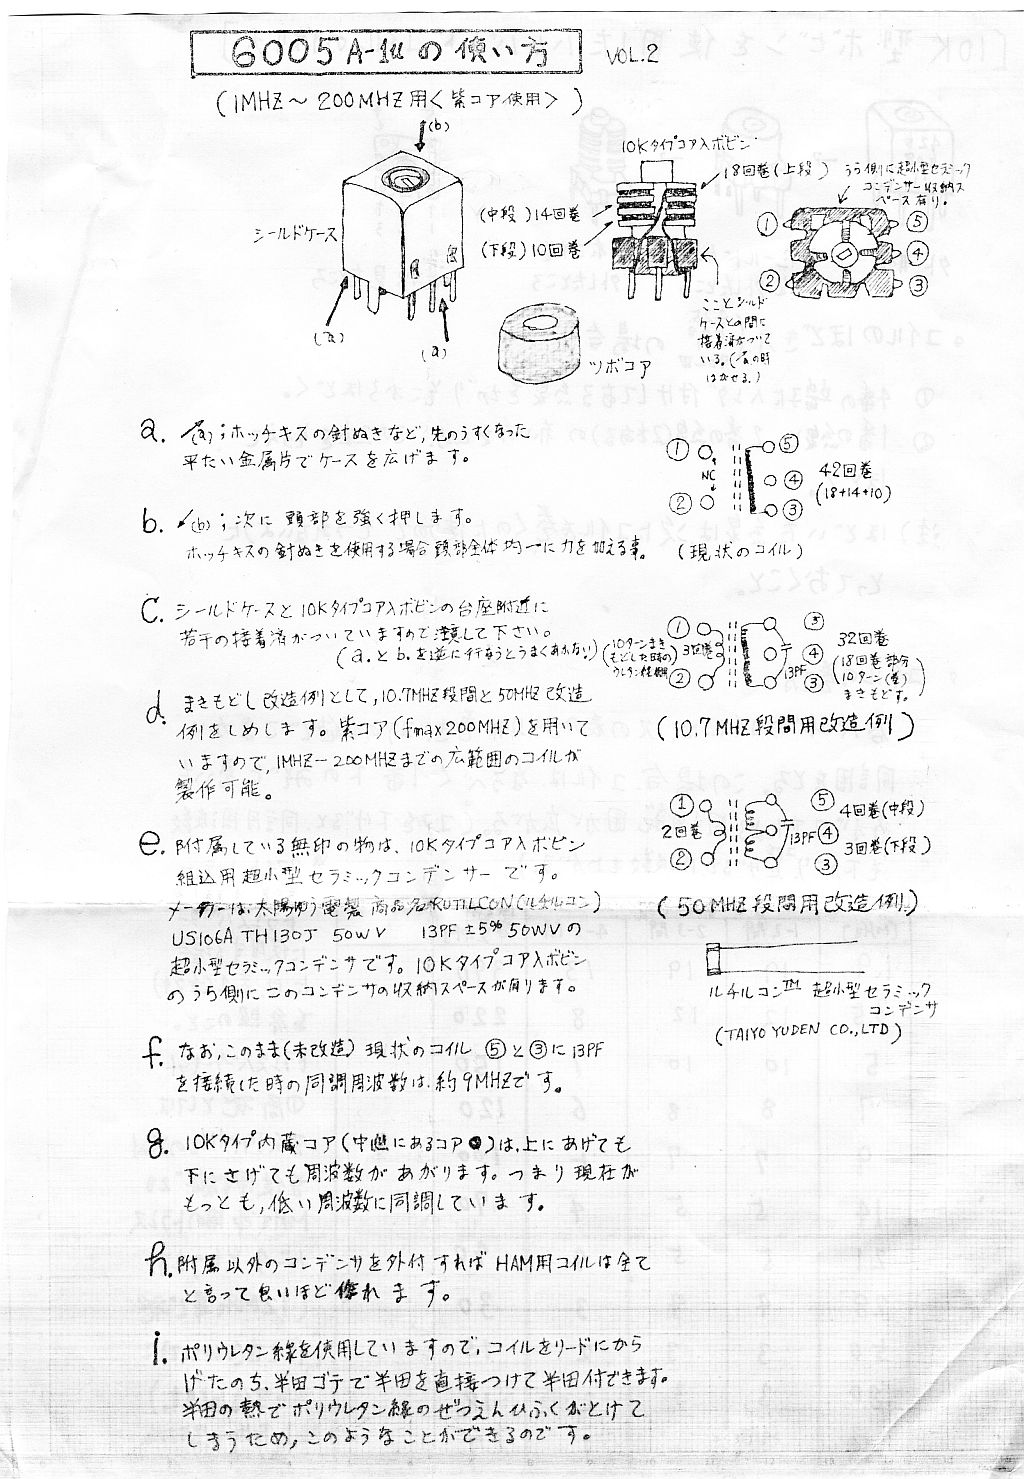 6005A-1uの使い方 VOL.2
(1MHZ〜200MHZ用<紫コア使用>)
(b)
シールドケース
(a)
(a)
10Kタイプコア入ボビン
18回巻(上段)
(中段)14回巻
(下段)10回巻
うら側に超小型セラミック
コンデンサー収納ス
ペース有り。
①
②
⑤
④
③
こことシールド
ケースとの間に
接着済がついて
いる。(aの時
はがせる。)
ツボコア
a. (a);ホッチキスの針ぬきなど,先のうすくなった
平たい金属片でケースを広げます。
① ⑤
NC ④
② ③
42回巻
(18+14+10)
(現状のコイル)
b. (b);次に 頭部を強く押します。
ホッチキスの針ぬきを使用する場合頭部全体均一に力を加える事。
C. シールドケースと10Kタイプコア入ボビンの台座附近に
若干の接着済がついていますので注意して下さい。
(a.とb.を逆に行なうとうまくあれない)
(10ターンまき
もどした時の
ウレタン線使用)
① 3回巻 ②
③ ④ ③
13PF
32回巻
(18回巻部分
10ターン(巻)
まきもどす。)
(10.7MHZ段間用改造例)
d. まきもどし改造例として,10.7MHZ段間と50MHZ改造
例をしめします。紫コア(fmax200MHZ)を用いて
いますので,1MHZ−200MHZまでの広範囲のコイルが
製作可能。
① 2回巻 ②
⑤ ④ ③
13PF
4回巻(中段)
3回巻(下段)
(50MHZ段間用改造例)
e. 附属している無印の物は、10Kタイプコア入ボビン
組込用超小型セラミックコンデンサーです。
メーカーは、太陽ゆう電製 商品名RUTILCON(ルチルコン)
US106A TH130J 50WV 13PF±5% 50WVの
超小型セラミックコンデンサです。10Kタイプコア入ボビン
のうら側にこのコンデンサの収納スペースが有ります。
ルチルコン™ 超小型セラミック
コンデンサ
(TAIYO YUDEN CO.,LTD)
f. なお,このまま(未改造) 現状のコイル ⑤と③に13PF
を接続した時の同調周波数は、約9MHZです。
g. 10Kタイプ内蔵コア(中心にあるコア●)は、上にあげても
下にさげても周波数があがります。つまり現在が
もっとも,低い周波数に同調しています。
h. 附属以外のコンデンサを外付すればHAM用コイルは全て
と言って良いほど作れます。
i. ポリウレタン線を使用していますので,コイルをリードにから
げたのち、半田ゴテで半田を直接つけて半田付できます。
半田の熱でポリウレタン線のぜつえんひふくがとけて
しまうため,このようなことができるのです。